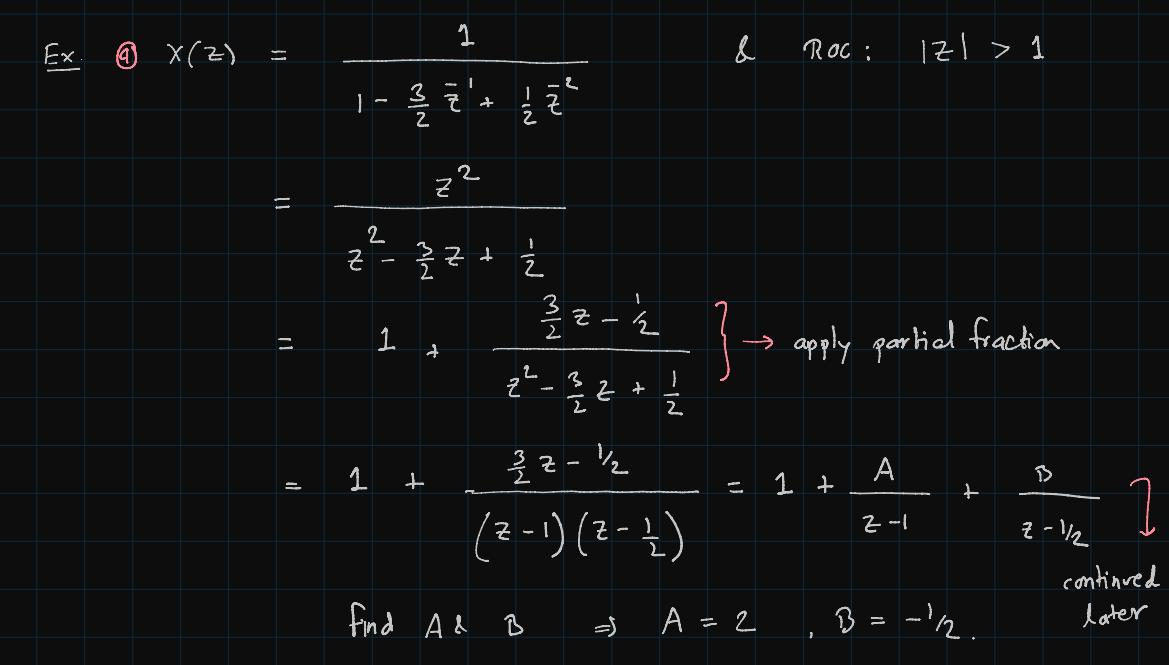 Ex. ⓐ X(z) = 1 / (1 - 3/2 z̄¹ + 1/2 z̄²) & ROC: |z| > 1
= z² / (z² - 3/2 z + 1/2)
= 1 + (3/2 z - 1/2) / (z² - 3/2 z + 1/2) } → apply partial fraction
= 1 + (3/2 z - 1/2) / ((z - 1)(z - 1/2)) = 1 + A / (z - 1) + B / (z - 1/2)
continued
later
find A & B ⇒ A = 2 , B = -1/2.